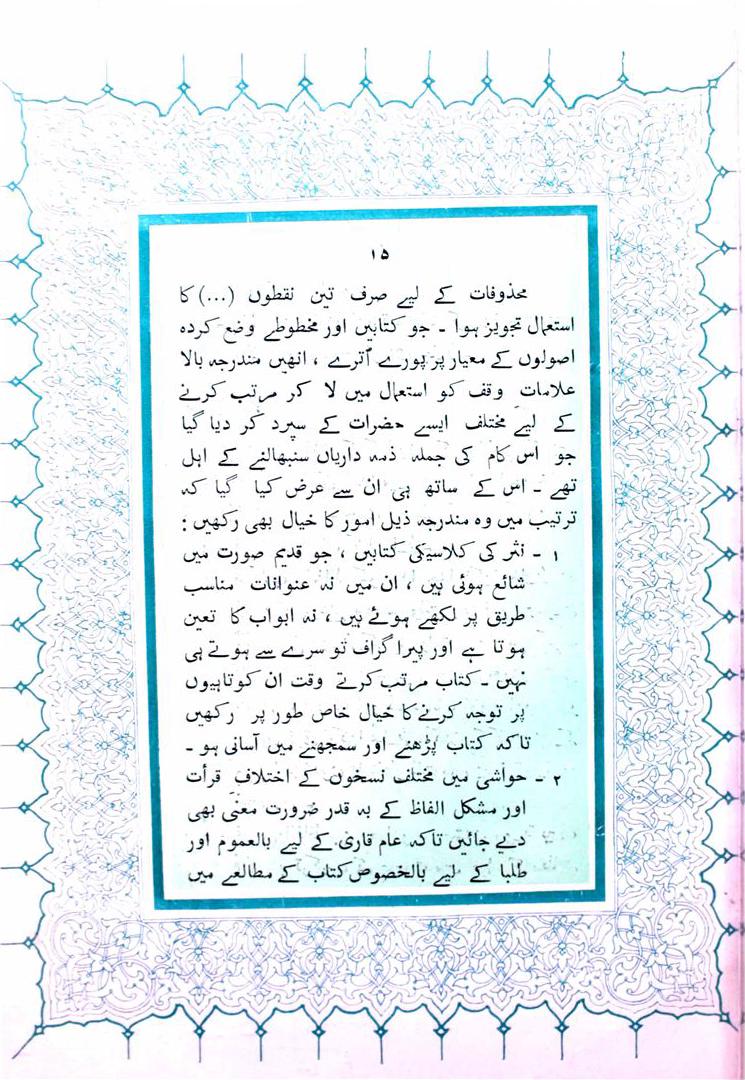 ۱۵
محذوفات کے لیے صرف تین نقطوں (...) کا
استعمال تجویز ہوا ۔ جو کتابیں اور مخطوطے وضع کردہ
اصولوں کے معیار پر پورے اُترے ، انھیں مندرجہ بالا
علامات وقف کو استعمال میں لا کر مرتب کرنے
کے لیے مختلف ایسے حضرات کے سپرد کر دیا گیا
جو اس کام کی جملہ ذمہ داریاں سنبھالنے کے اہل
تھے ۔ اس کے ساتھ ہی ان سے عرض کیا گیا کہ
ترتیب میں وہ مندرجہ ذیل امور کا خیال بھی رکھیں :
۱ ۔ نثر کی کلاسیکی کتابیں ، جو قدیم صورت میں
شائع ہوئی ہیں ، ان میں نہ عنوانات مناسب
طریق پر لکھے ہوئے ہیں ، نہ ابواب کا تعین
ہوتا ہے اور پیرا گراف تو سرے سے ہوتے ہی
نہیں ۔ کتاب مرتب کرتے وقت ان کوتاہیوں
پر توجہ کرنے کا خیال خاص طور پر رکھیں
تاکہ کتاب پڑھنے اور سمجھنے میں آسانی ہو ۔
۲ ۔ حواشی میں مختلف نسخوں کے اختلافِ قرأت
اور مشکل الفاظ کے بہ قدر ضرورت معنی بھی
دے جائیں تاکہ عام قاری کے لیے بالعموم اور
طلبا کے لیے بالخصوص کتاب کے مطالعے میں